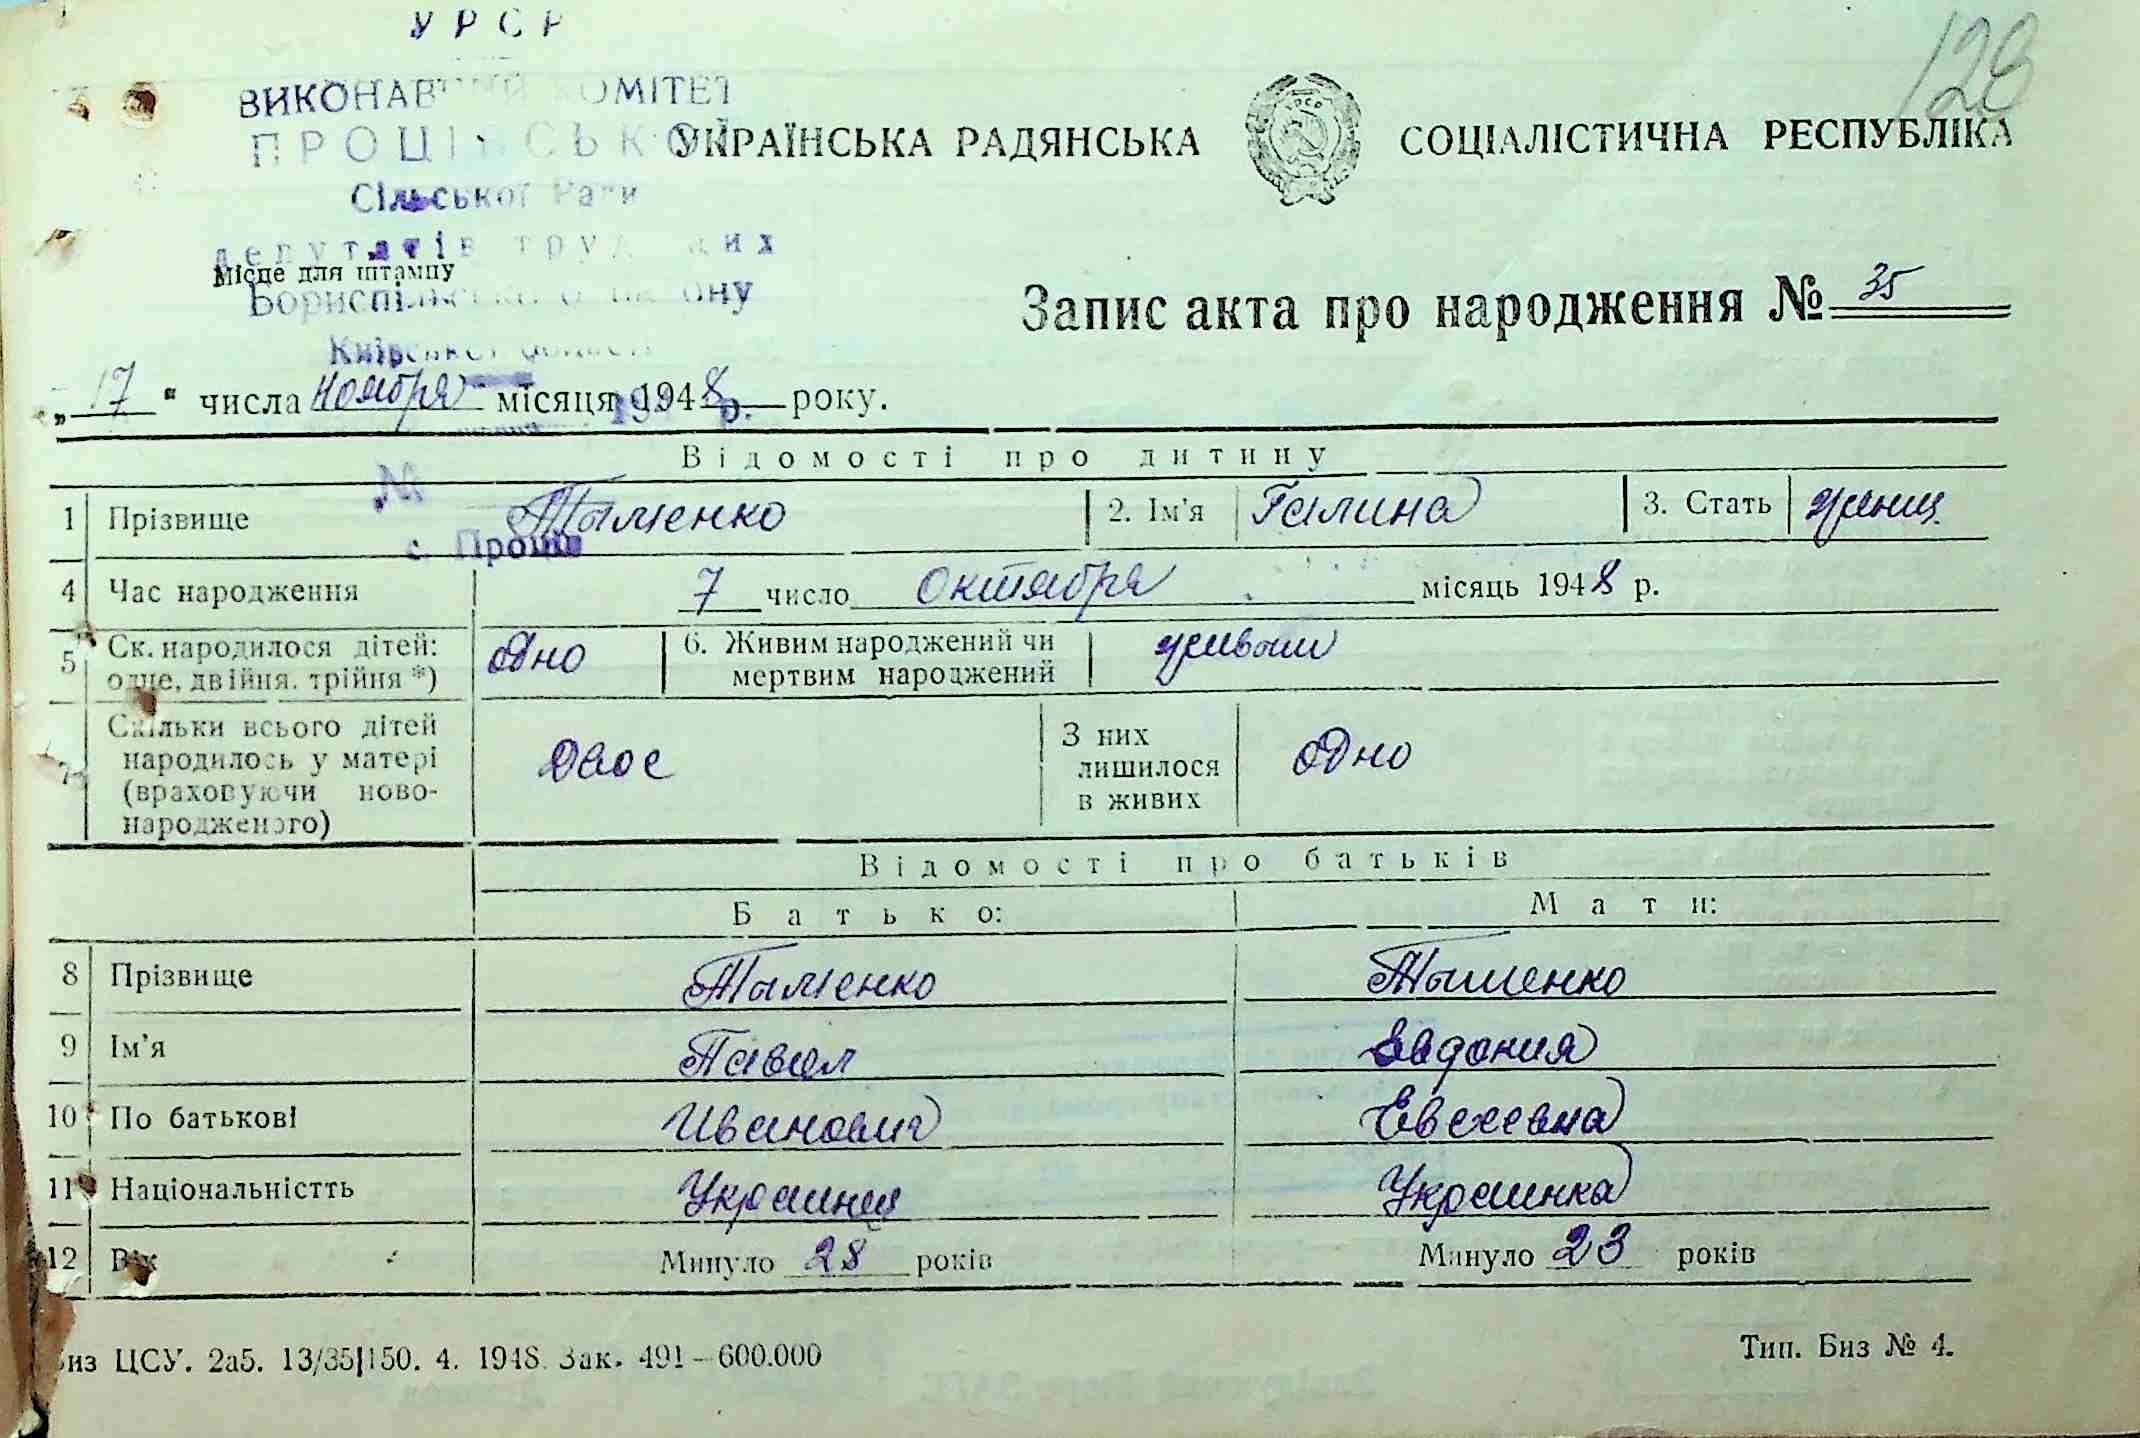 УРСР
128
ВИКОНАВЧИЙ КОМІТЕТ
ПРОЦІВСЬКОЇ
УКРАЇНСЬКА РАДЯНСЬКА СОЦІАЛІСТИЧНА РЕСПУБЛІКА
Сільської Ради
депутатів трудящих
Місце для штампу
Бориспільського району
Запис акта про народження № 35
Київської області
„17“ числа ноября місяця 1948 року.
Відомості про дитину
№
1 Прізвище Тыменко 2. Ім'я Галина 3. Стать женщ.
с. Проців
4 Час народження 7 число октября місяць 1948 р.
5 Ск. народилося дітей: одно 6. Живим народжений чи живым
одне, двійня, трійня *) мертвим народжений
7 Скільки всього дітей
народилось у матері двое З них лишилося в живих одно
(враховуючи ново-
народженого)
Відомості про батьків
Батько: Мати:
8 Прізвище Тыменко Тыменко
9 Ім'я Павел Евдокия
10 По батькові Иванович
11 Національністть Украинец Украинка
12 Вік Минуло 28 років Минуло 23 років
Биз ЦСУ. 2а5. 13/35|150. 4. 1948 Зак. 491–600.000
Тип. Биз № 4.